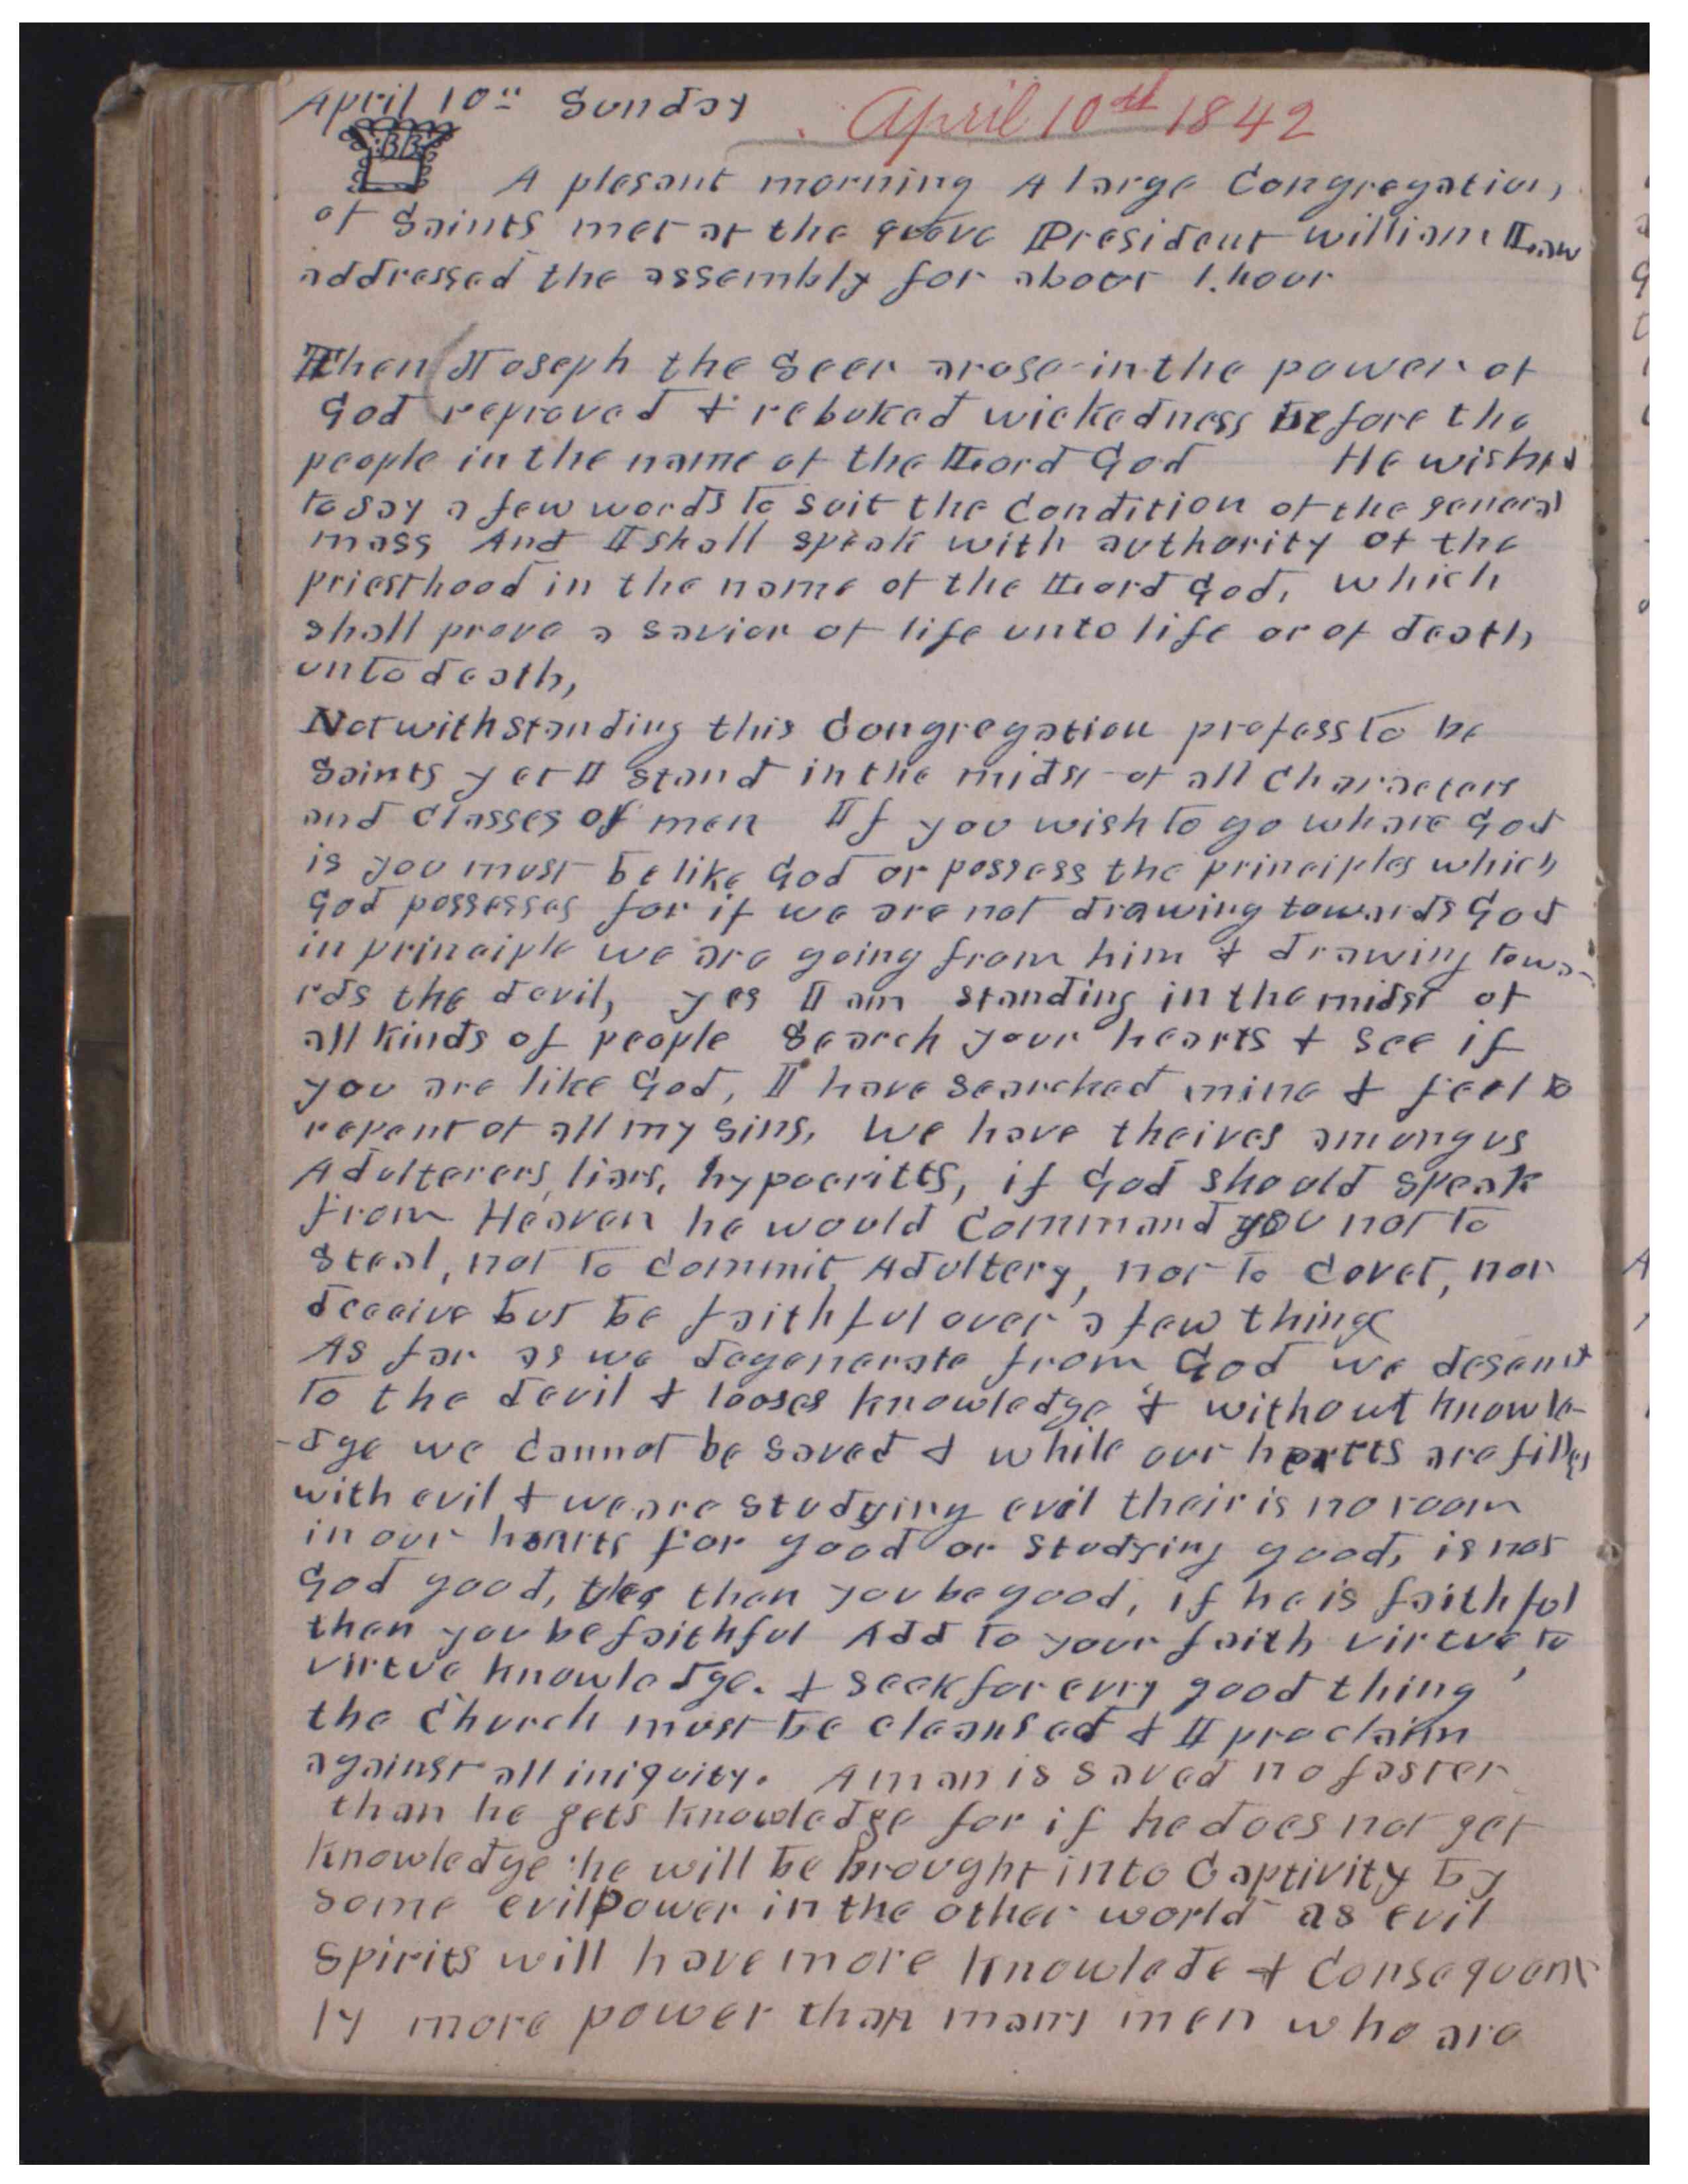 April 10th Sunday
April 10th 1842
BB
A plesant morning A large Congregation,
of Saints met at the grove President William Law
addressed the assembly for about 1. hour
Then Joseph the Seer arose in the power of
God reproved & rebuked wickedness before the
people in the name of the Lord God He wished
to say a few words to suit the Condition of the general
mass And I shall speak with authority of the
priesthood in the name of the Lord God, which
shall prove a savior of life unto life or of death
unto death,
Notwithstanding this Congregation profess to be
Saints yet I stand in the midst of all Characters
and Classes of men If you wish to go whare God
is you must be like God or possess the principles which
God possesses for if we are not drawing towards God
in principle we are going from him & drawing towa-
rds the devil, yes I am standing in the midst of
all kinds of people Search your hearts & see if
you are like God, I have searched mine & feel to
repent of all my sins, We have theives among us
Adulterers, liars, hypocritts, if God should speak
from Heaven he would Command you not to
Steal, not to Commit Adultery, nor to Covet, nor
deceive but be faithful over a few things
As far as we degenerate from God we desend
to the devil & looses knowledge & without knowle-
-dge we Cannot be saved & while our hearts are filled
with evil & we are studying evil their is no room
in our hearts for good or studying good, is not
God good, yes then you be good, if he is faithful
then you be faithful Add to your faith virtue to
virtue knowledge. & seek for evry good thing,
the Church must be cleansed & I proclaim
against all iniquity. A man is saved no faster
than he gets knowledge for if he does not get
knowledge he will be brought into Captivity by
some evil power in the other world as evil
Spirits will have more knowlede & Consequent
ly more power than many men who are